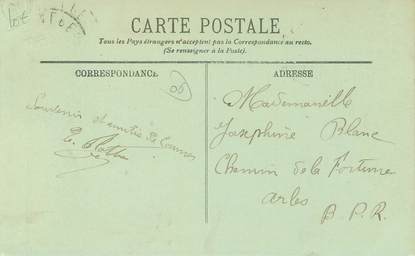 10€ 10€
CARTE POSTALE
Tous les Pays étrangers n'acceptent pas la Correspondance au recto.
(Se renseigner à la Poste).
CORRESPONDANCE
06
Souvenir
ADRESSE
Mademoiselle
Josephine Blanc
Chemin de la Fortune
Arles
B. P. R.